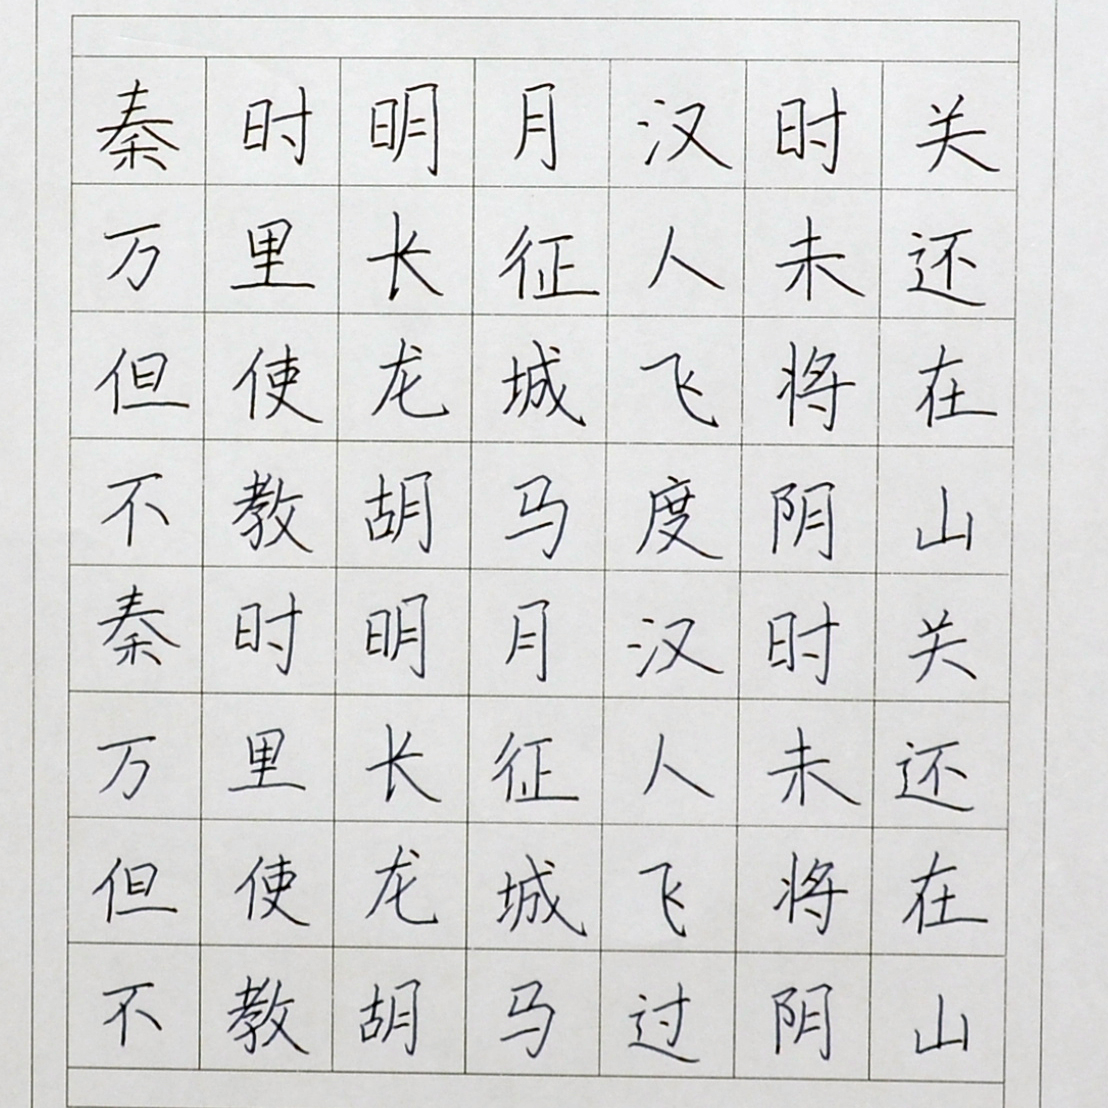 秦时明月汉时关
万里长征人未还
但使龙城飞将在
不教胡马度阴山
秦时明月汉时关
万里长征人未还
但使龙城飞将在
不教胡马过阴山